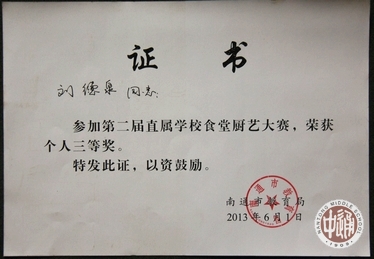 证书
刘德泉 同志:
参加第二届直属学校食堂厨艺大赛，荣获
个人三等奖。
特发此证，以资鼓励。
南通市教育局
2013年6月1日
南通市教育局
NANTONG MIDDLE SCHOOL
1909